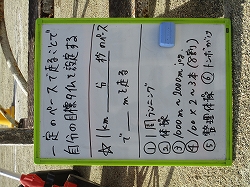 一定のペースで走ることで
自分の目標タイムを設定する
☆1km 分 秒のペース
で mを走る
① 1周ランニング
② 体操
③ 1000m〜2000m ing
④ 100×2〜3本(8割)
⑤ 整理体操 ⑥ トンボがけ